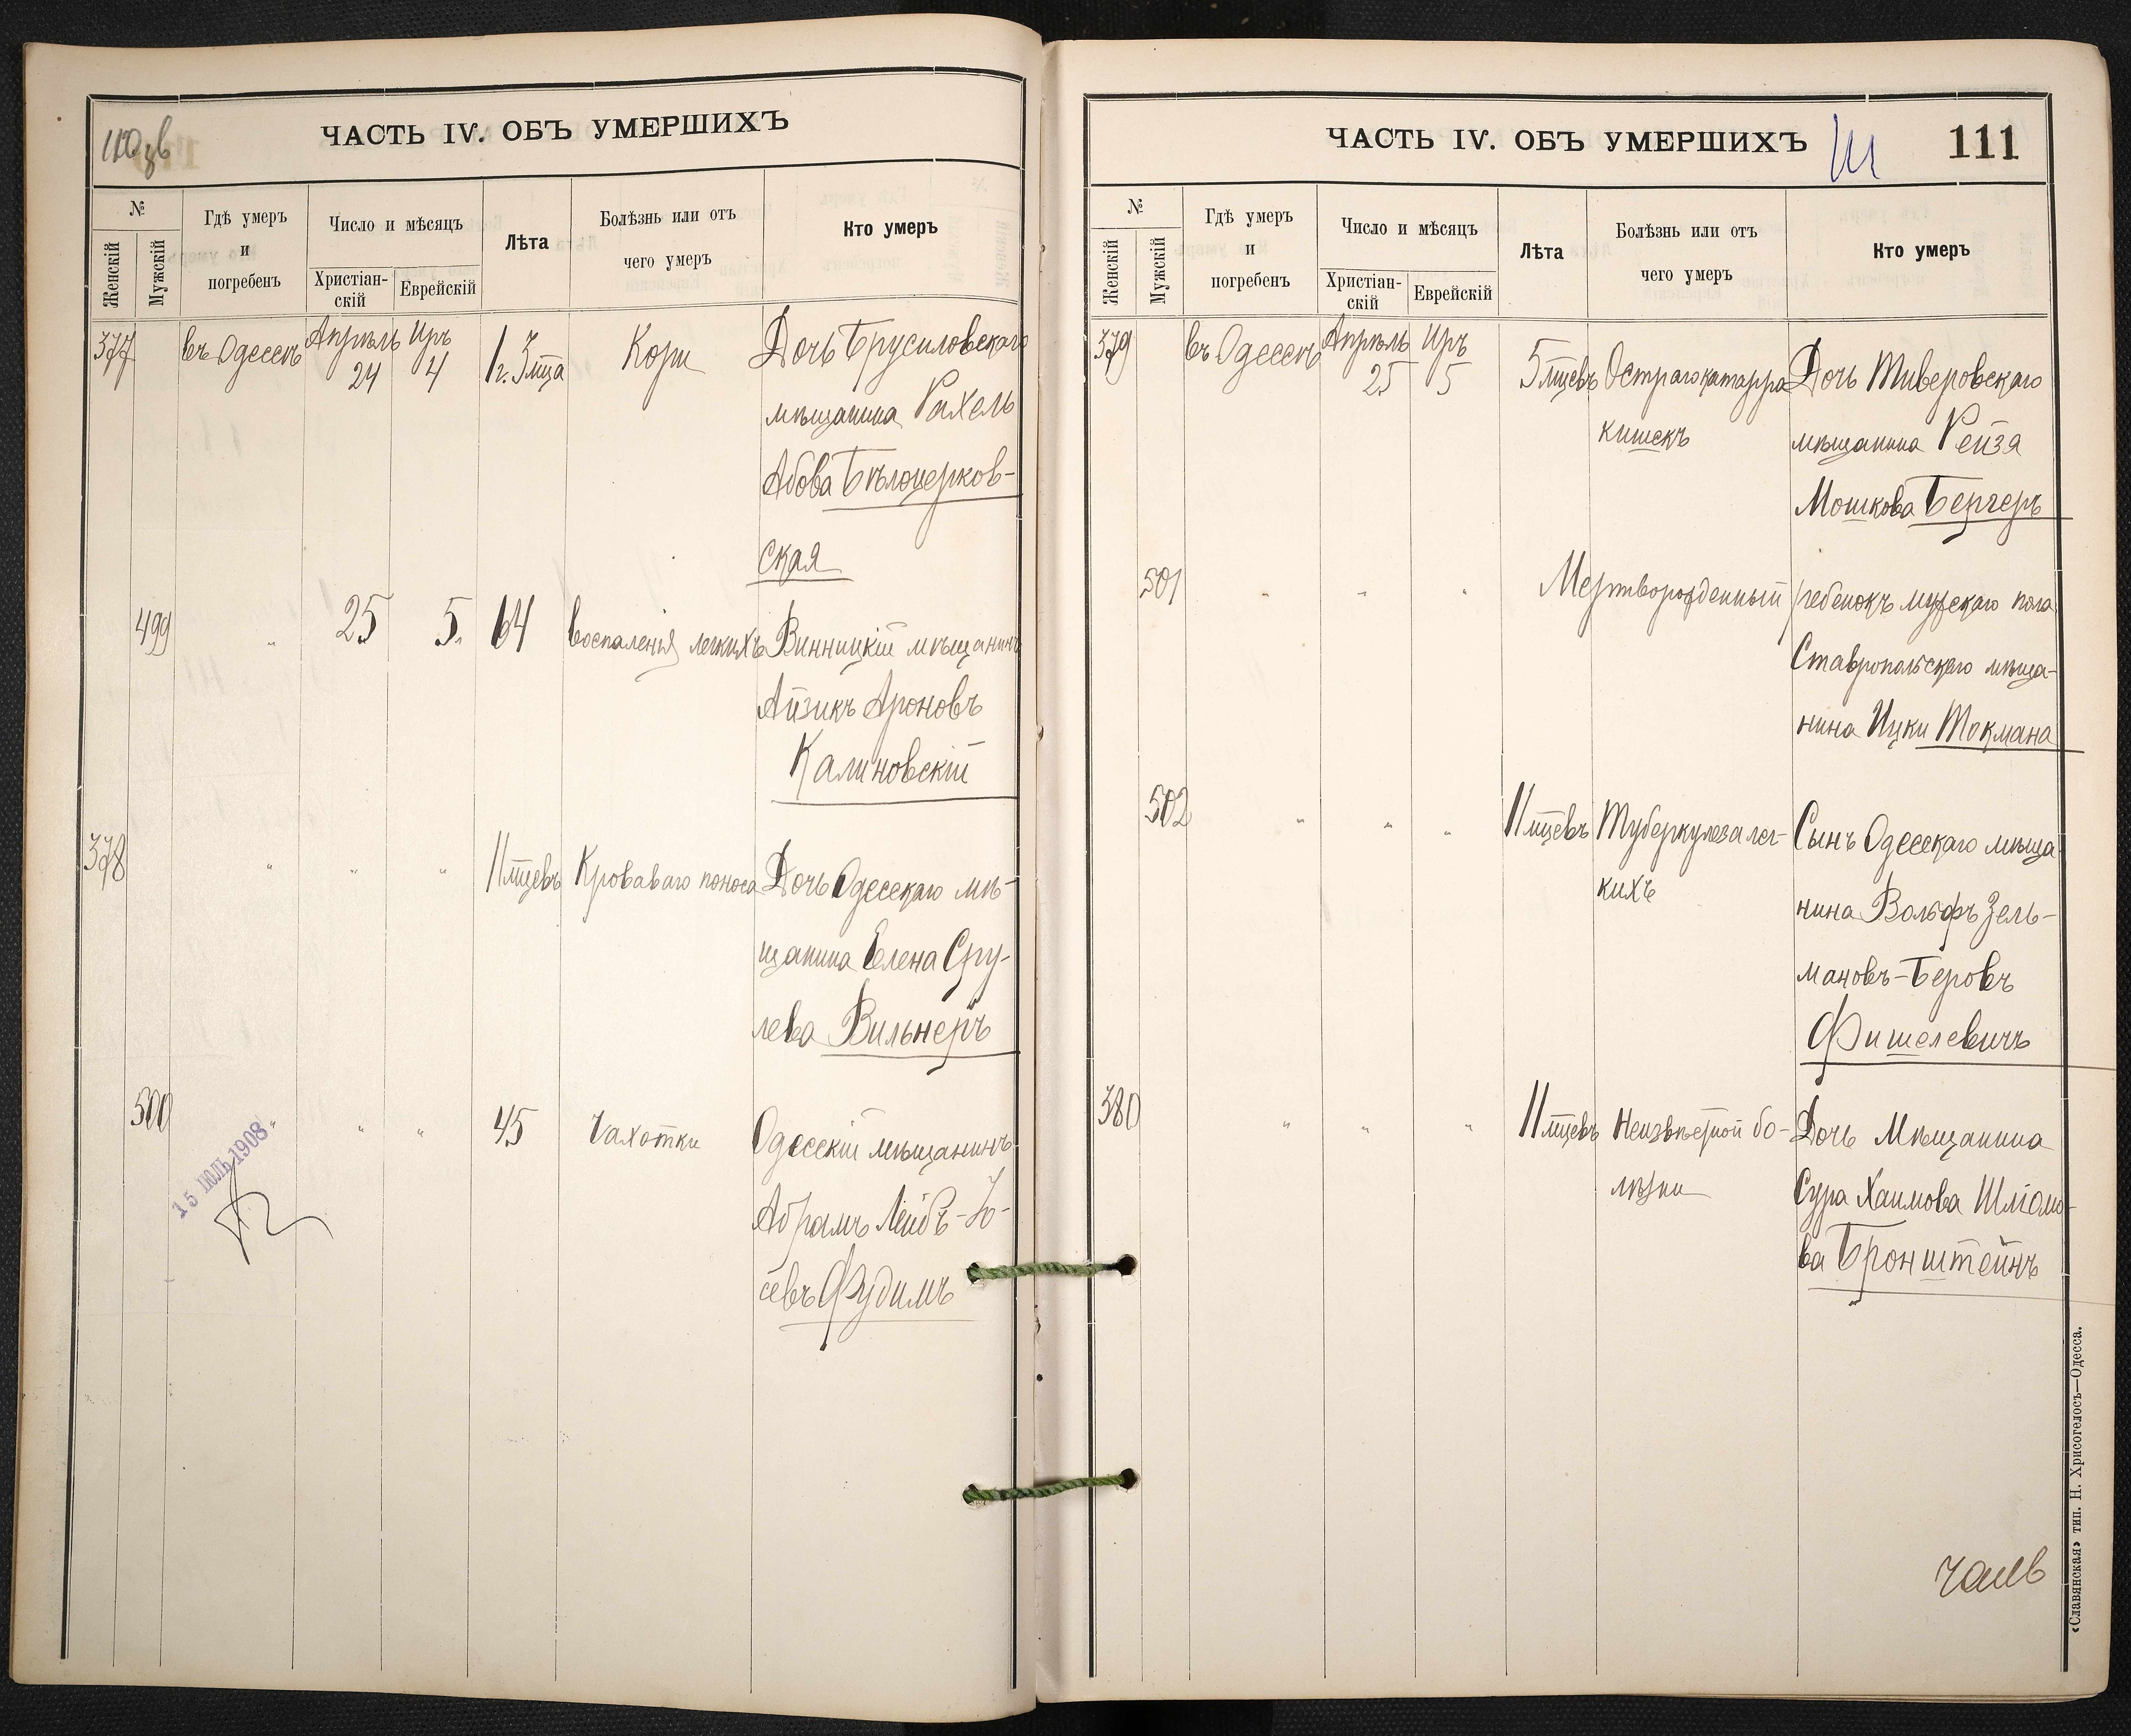 110 зв
ЧАСТЬ IV. ОБЪ УМЕРШИХЪ
№
Женскій
Мужскій
Гдѣ умеръ
и
погребенъ
Число и мѣсяцъ
Христіан-
скій
Еврейскій
Лѣта
Болѣзнь или отъ
чего умеръ
Кто умеръ
377 въ Одессѣ Апрѣль Иръ 1 г. 3 мца Кори Дочь Брусиловскаго
24 4
мѣщанина Рахель
Абова Бѣлоцерков-
ская
499 " 25 5. 64 Воспаленія легкихъ Винницкій мѣщанинъ
Айзикъ Ароновъ
Калиновскій
378 " " " 11 мцевъ Кроваваго поноса Дочь Одесскаго мѣ-
щанина Елена Сру-
лева Вильнеръ
500 " " " 45 Чахотки Одесскій мѣщанинъ
15 ІЮЛЬ 1908
Абрамъ Лейбъ-Іо-
севъ Фудимъ
ЧАСТЬ IV. ОБЪ УМЕРШИХЪ
111
111
№
Женскій
Мужскій
Гдѣ умеръ
и
погребенъ
Число и мѣсяцъ
Христіан-
скій
Еврейскій
Лѣта
Болѣзнь или отъ
чего умеръ
Кто умеръ
379 въ Одессѣ Апрѣль Иръ 5 мцевъ Остраго катарра Дочь Тиверовскаго
25 5
кишекъ мѣщанина Рейза
Мошкова Бергеръ
501 " " " Мертворожденный ребенокъ мужскаго пола
Ставропольскаго мѣща-
нина Ицки Токмана
502 " " " 11 мцевъ Туберкулеза лег- Сынъ Одесскаго мѣща-
кихъ нина Вольфъ Зель-
мановъ-Беровъ
Фишелевичъ
380 " " " 11 мцевъ Неизвѣстной бо- Дочь Мѣщанина
лѣзни Сура Хаимова Шліомо-
ва Бронштейнъ
«Славянская» тип. Н. Хрисогелосъ—Одесса.